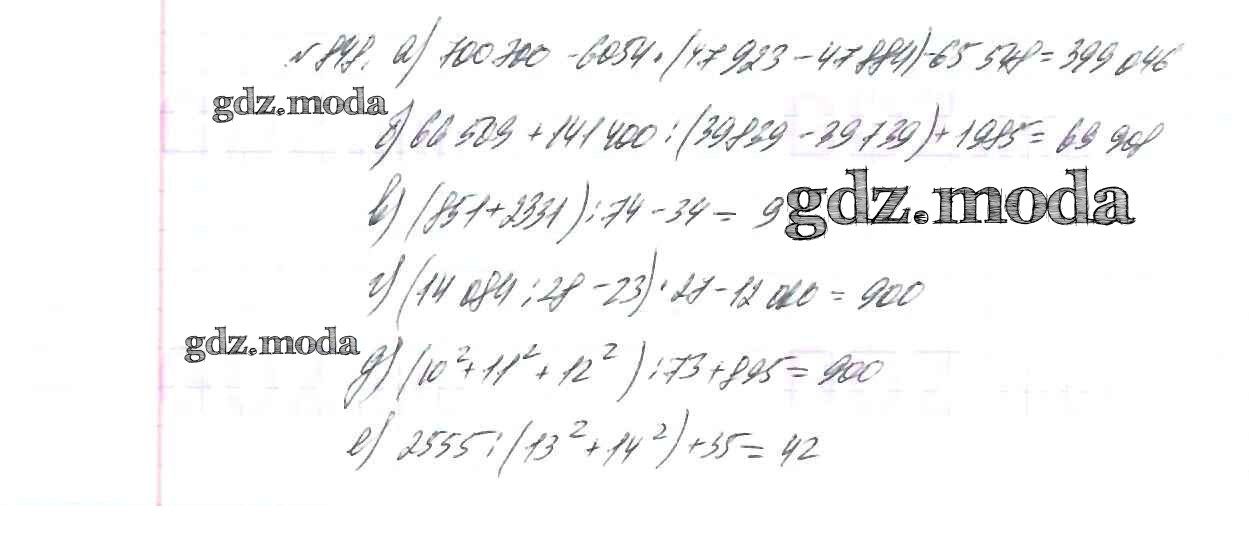 № 848. а) 700 700 - 6054 · (47 923 - 47 884) - 65 548 = 399 046
gdz.moda
б) 66 509 + 141 400 : (39839 - 39739) + 1985 = 69 908
в) (851 + 2331) : 74 - 34 = 9
gdz.moda
г) (14 084 : 28 - 23) · 27 - 12 060 = 900
gdz.moda
д) (10² + 11² + 12²) : 73 + 895 = 900
е) 2555 : (13² + 14²) + 35 = 42